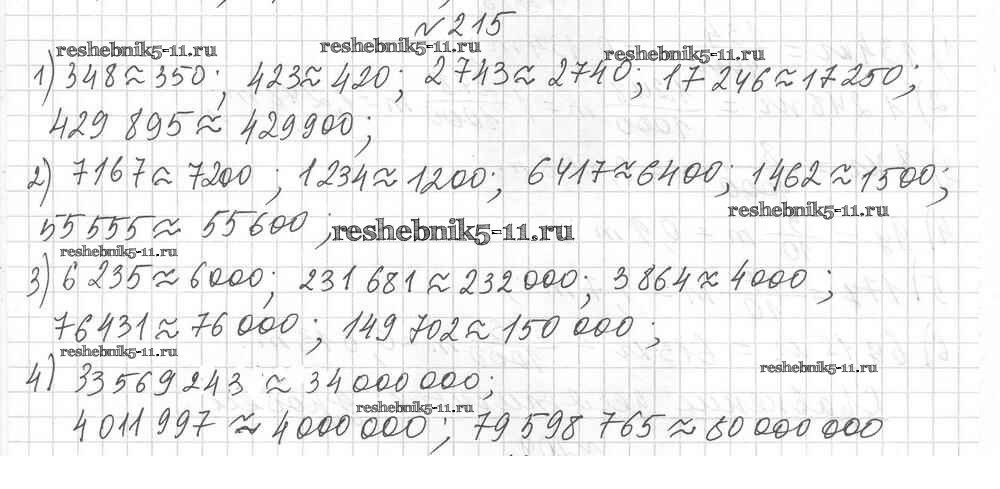 №215
reshebnik5-11.ru reshebnik5-11.ru reshebnik5-11.ru
1) 348≈350; 423≈420; 2743≈2740; 17 246≈17250;
429 895≈ 429900;
2) 7167≈ 7200 ; 1234≈1200; 6417≈6400; 1462≈1500;
reshebnik5-11.ru
55555≈ 55600; reshebnik5-11.ru
reshebnik5-11.ru
3) 6235≈6000; 231 681≈232000; 3864≈4000;
76431≈76000; 149 702≈150 000;
reshebnik5-11.ru reshebnik5-11.ru
4) 33569243 ≈ 34000000;
reshebnik5-11.ru
4011 997 ≈ 4000000; 79 598 765≈80 000 000